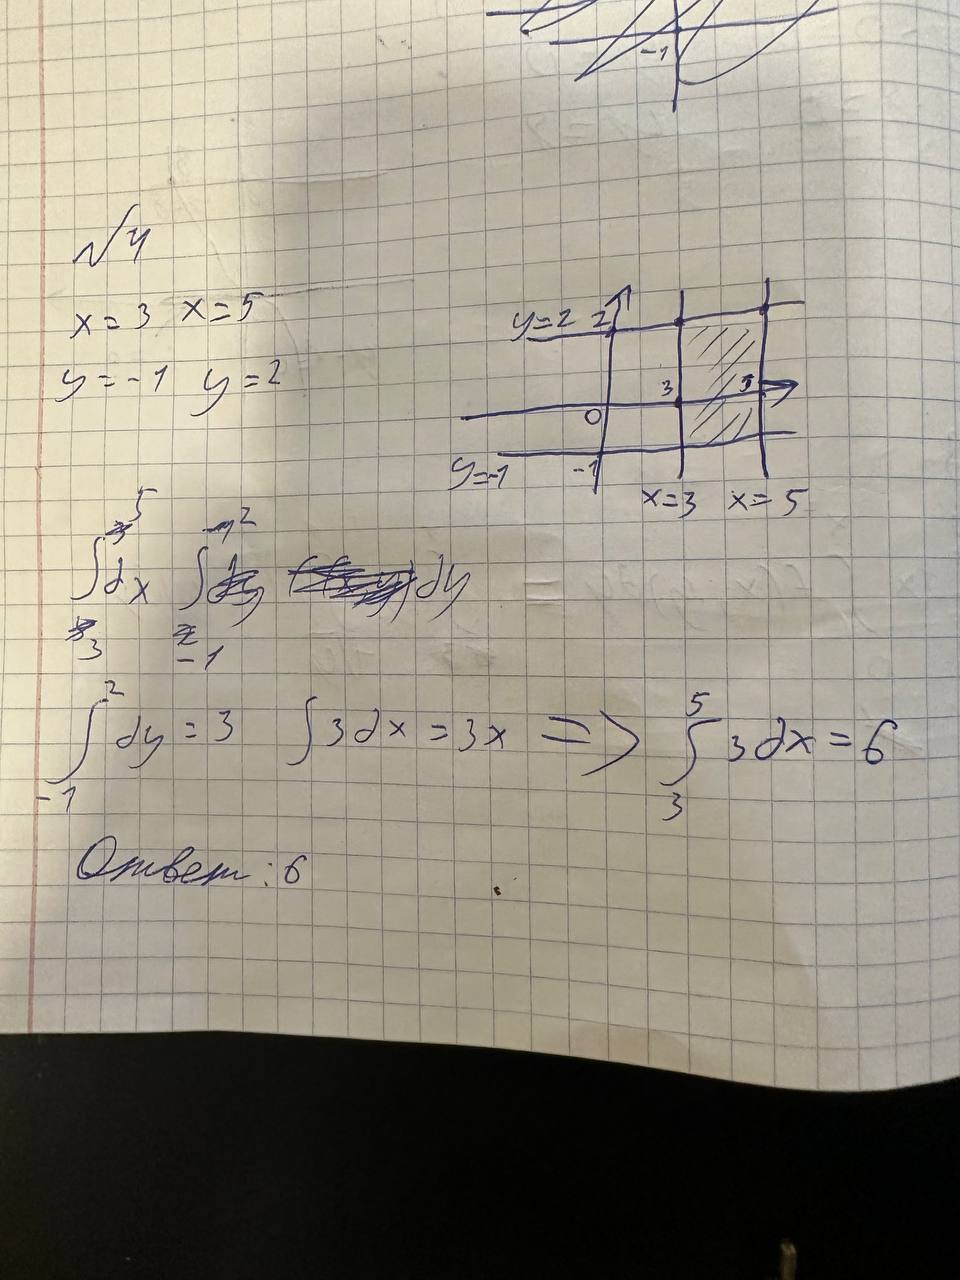 -1
√4
x = 3 x = 5
y = -1 y = 2
y=2 2
3 5
0
y=-1 -1
x=3 x=5
∫₃⁵ dx ∫₋₁² dy
∫₋₁² dy = 3 ∫ 3dx = 3x => ∫₃⁵ 3dx = 6
Ответ: 6